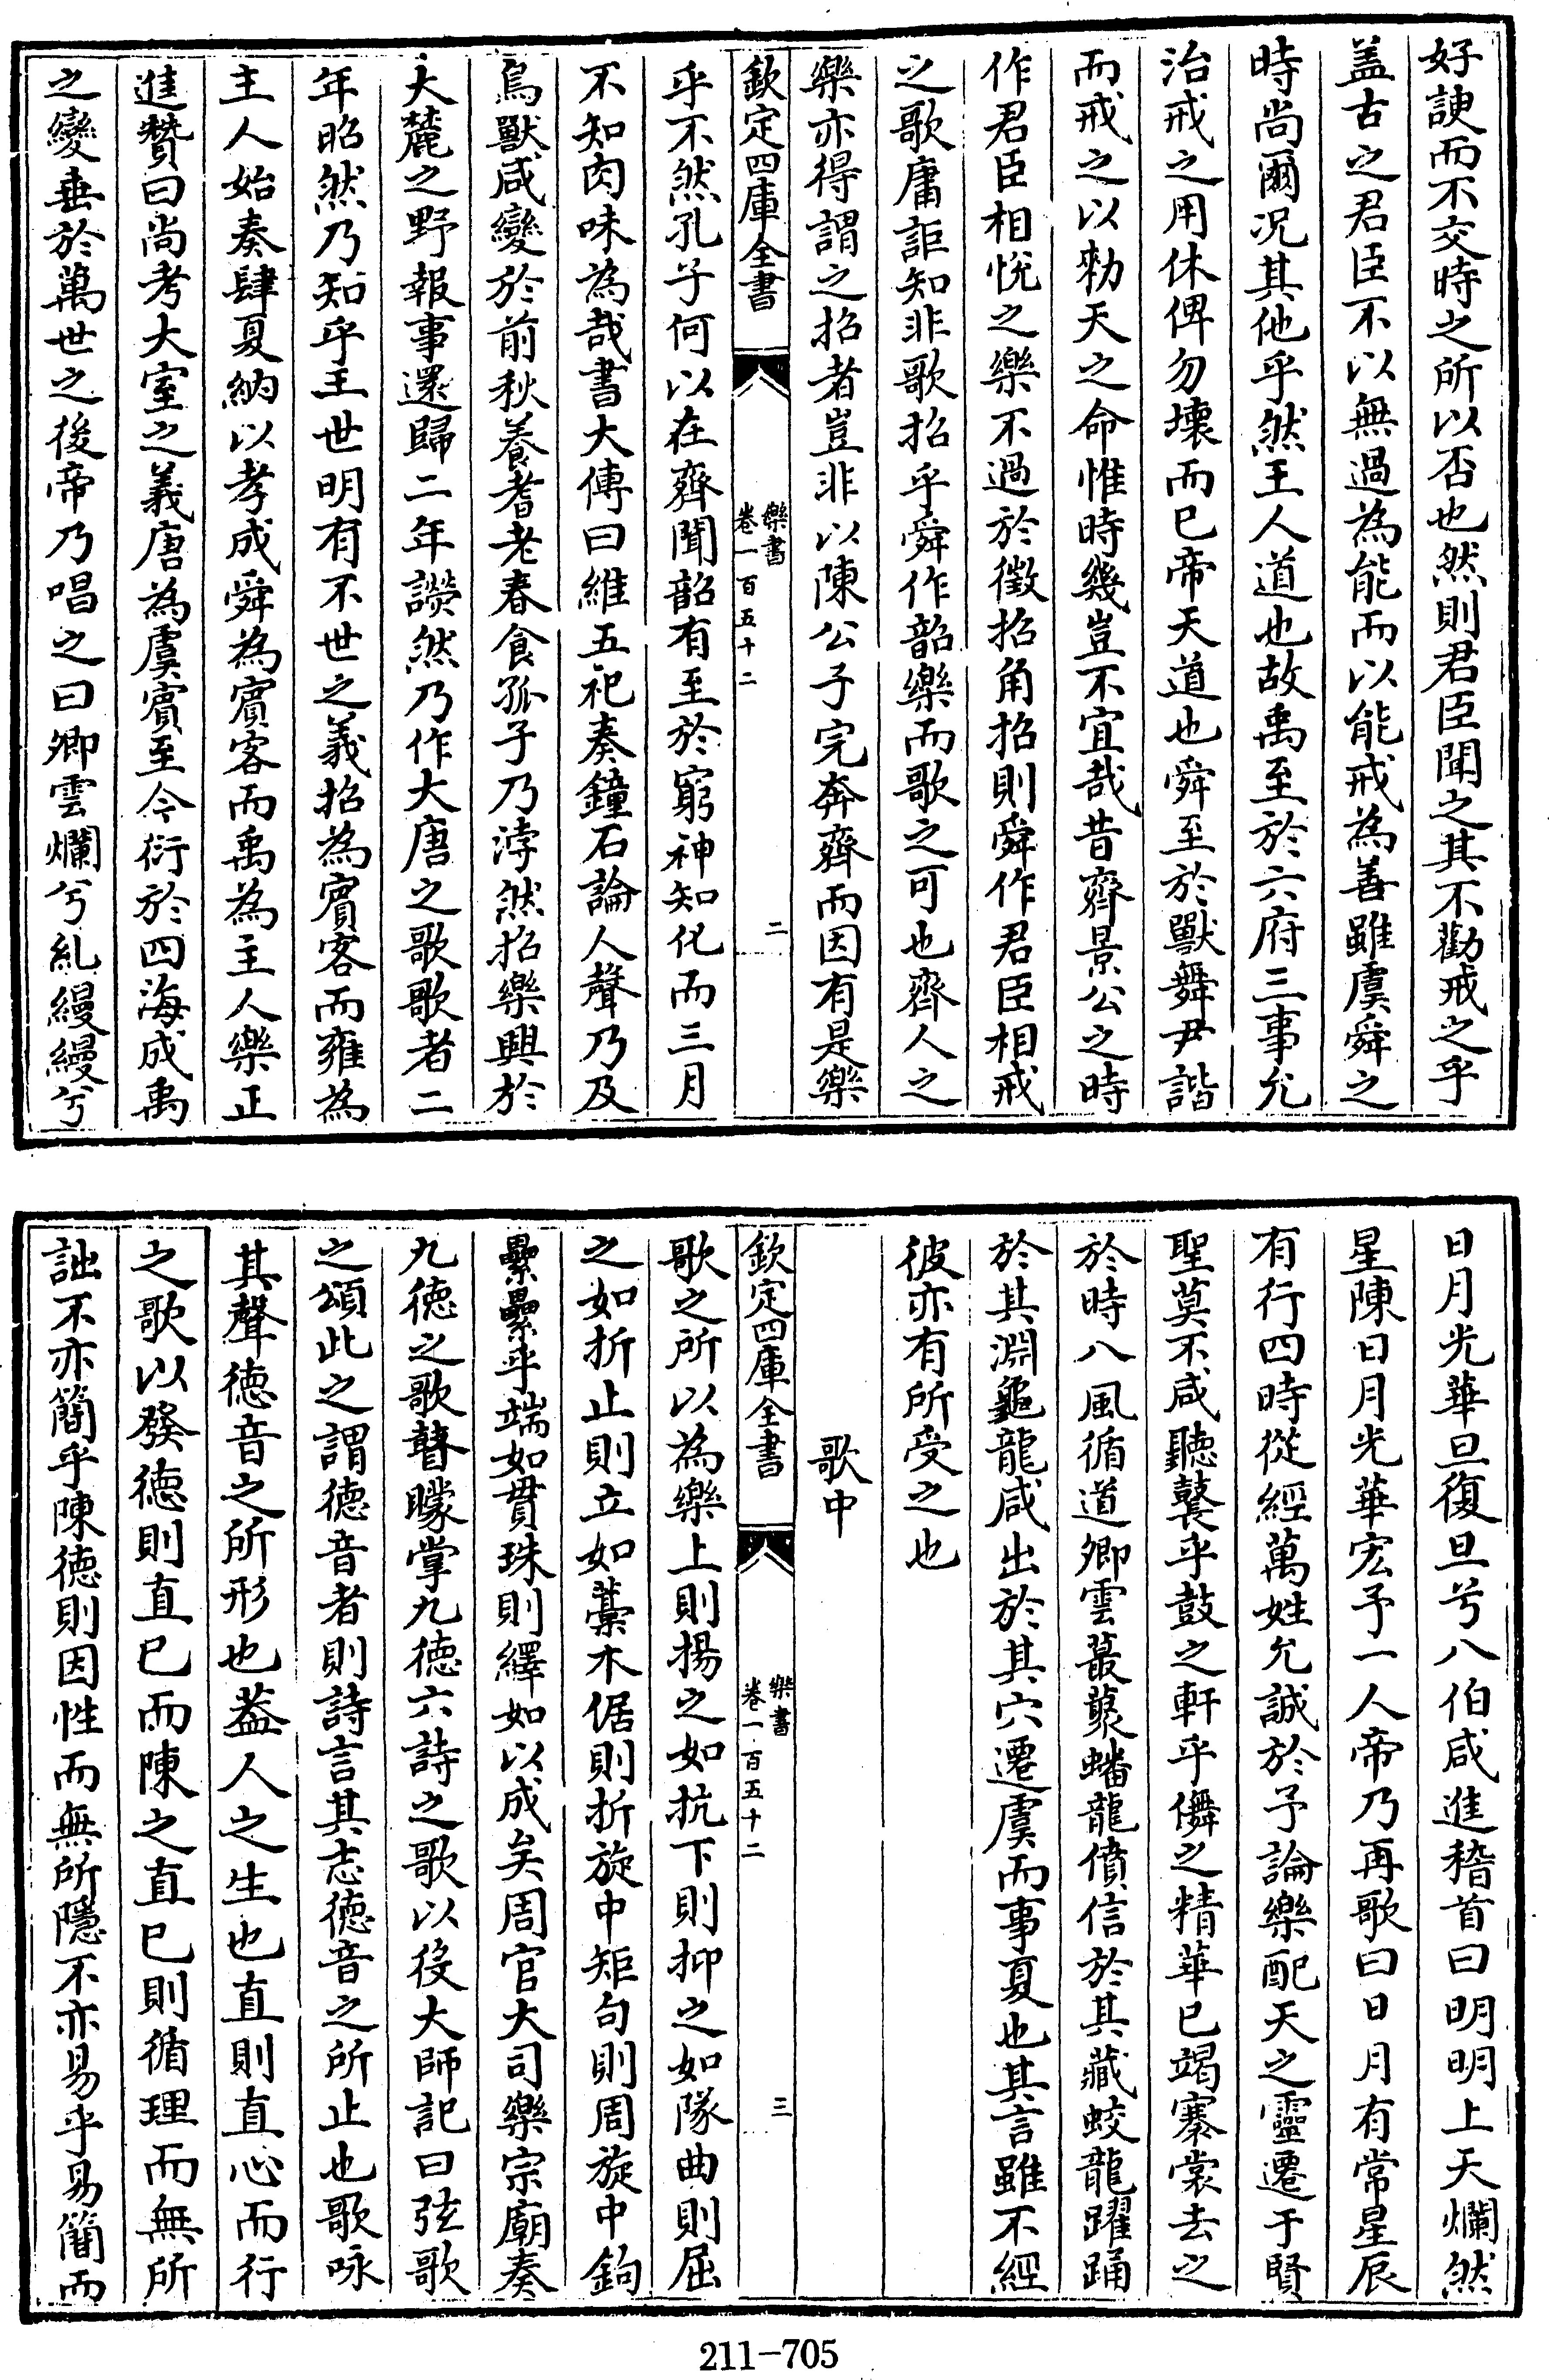 好諛而不交時之所以否也然則君臣聞之其不勸戒之乎
盖古之君臣不以無過為能而以能戒為善雖虞舜之
時尚爾况其他乎然王人道也故禹至於六府三事允
治戒之用休俾勿壊而已帝天道也舜至於獸舞尹諧
而戒之以勑天之命惟時幾豈不宜哉昔齊景公之時
作君臣相悅之樂不過於徵招角招則舜作君臣相戒
之歌庸詎知非歌招乎舜作韶樂而歌之可也齊人之
樂亦得謂之招者豈非以陳公子完奔齊而因有是樂
欽定四庫全書
樂書
卷一百五十二
二
乎不然孔子何以在齊聞韶有至於窮神知化而三月
不知肉味為哉書大傳曰維五祀奏鐘石論人聲乃及
鳥獸咸變於前秋養耆老春食孤子乃浡然招樂興於
大麓之野報事還歸二年談然乃作大唐之歌歌者二
年昭然乃知乎王世明有不世之義招為賓客而雍為
主人始奏肆夏納以孝成舜為賓客而禹為主人樂正
進贊曰尚考大室之義唐為虞賓至今衍於四海成禹
之變垂於萬世之後帝乃唱之曰卿雲爛兮糺縵縵兮
日月光華旦復旦兮八伯咸進稽首曰明明上天爛然
星陳日月光華宏予一人帝乃再歌曰日月有常星辰
有行四時從經萬姓允誠於予論樂配天之靈遷于賢
聖莫不咸聽鼚乎鼓之軒乎儛之精華已竭褰裳去之
於時八風循道卿雲蕞藂蟠龍僨信於其藏蛟龍躍踊
於其淵龜龍咸出於其穴遷虞而事夏也其言雖不經
彼亦有所受之也
歌中
欽定四庫全書
樂書
卷一百五十二
三
歌之所以為樂上則揚之如抗下則抑之如隊曲則屈
之如折止則立如藁木倨則折旋中矩句則周旋中鉤
纍纍乎端如貫珠則繹如以成矣周官大司樂宗廟奏
九徳之歌瞽矇掌九徳六詩之歌以役大師記曰弦歌
之頌此之謂徳音者則詩言其志徳音之所止也歌咏
其聲徳音之所形也葢人之生也直則直心而行
之歌以發徳則直已而陳之直已則循理而無所
詘不亦簡乎陳徳則因性而無所隱不亦易乎易簡而
211-705